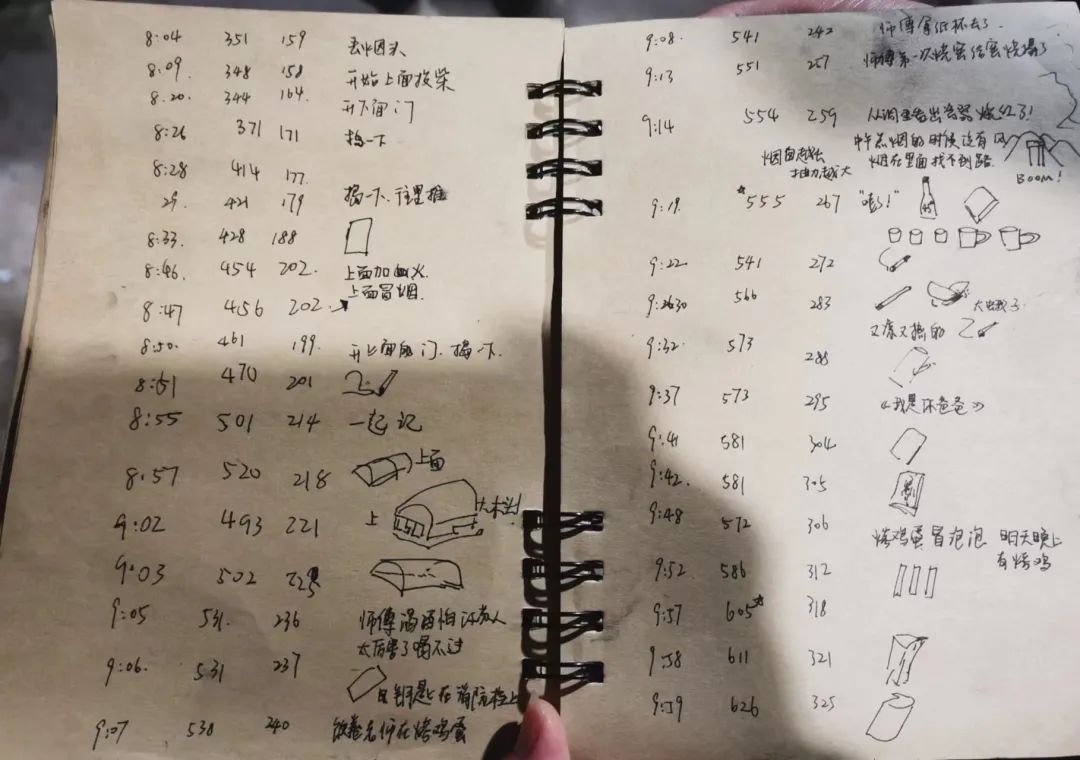 8:04 351 159 丢烟头
8:09 348 158 开始上面投柴
8:20 344 164 开下面门
8:26 371 171 捣一下
8:28 414 177
29 421 179 捣一下、往里推
8:33 428 188
8:46 454 202 上面加血火
上面冒烟
8:47 456 202
8:50 461 199 开上面的门、捣一下
8:51 470 201
8:55 501 214 一起记
8:57 520 218 上面
9:02 493 221 上 大木头!
9:03 502 225
9:05 531 236 师傅喝酒怕江苏人
太厉害了喝不过
9:06 531 237
钥匙在消防栓上
9:07 538 240 老师在烤鸡蛋
9:08 541 242 师傅拿纸杯去了
9:13 551 257 师傅第一次烧窑结窑烧爆了
9:14 554 259 从洞里看出瓷器烧红了!
中午点烟的时候没有风
烟在里面找不到路
烟囱越长
抽力越大
BOOM!
9:19 *555 267 "嘭!"
9:22 541 272
9:2630 566 283
9:32 573 288 又浓又揾的
9:37 573 295 《我是你爸爸》
9:41 581 304
9:42 581 305
9:48 572 306 烤鸡蛋冒泡泡 明天晚上
有烤鸡
9:52 586 312
9:57 605* 318
9:58 611 321
9:59 626 325